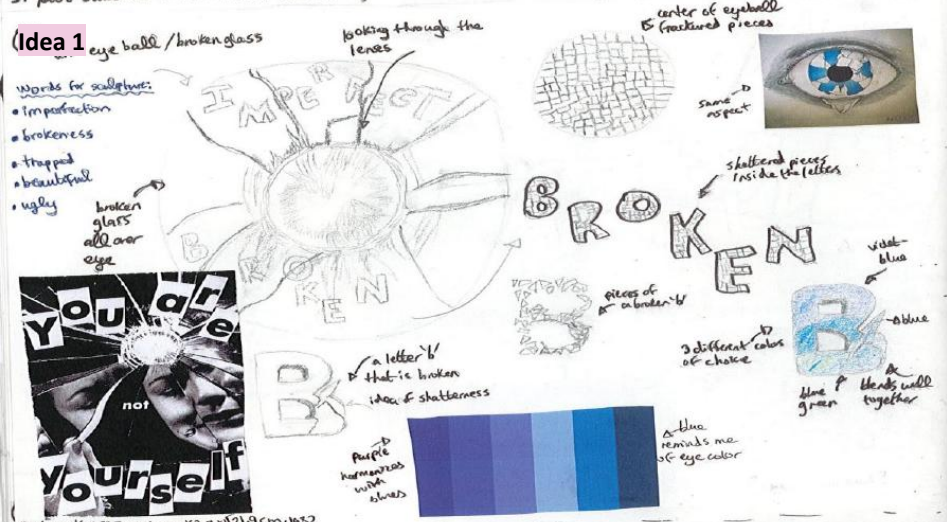 Idea 1
eye ball / broken glass
words for sculpture:
• imperfection
• brokeness
• trapped
• beautiful
• ugly
looking through the
lenses
IMPERFECT
BROKEN
broken
glass
all over
eye
center of eyeball
fractured pieces
same
aspect
shattered pieces
inside the letters
BROKEN
B
pieces of
a broken 'b'
violet-
blue
B
blue
3 different colors
of choice
blue
green
blends well
together
You are
not
yourself
B
a letter 'b'
that is broken
idea of shatterness
purple
harmonizes
with
blues
blue
reminds me
of eye color